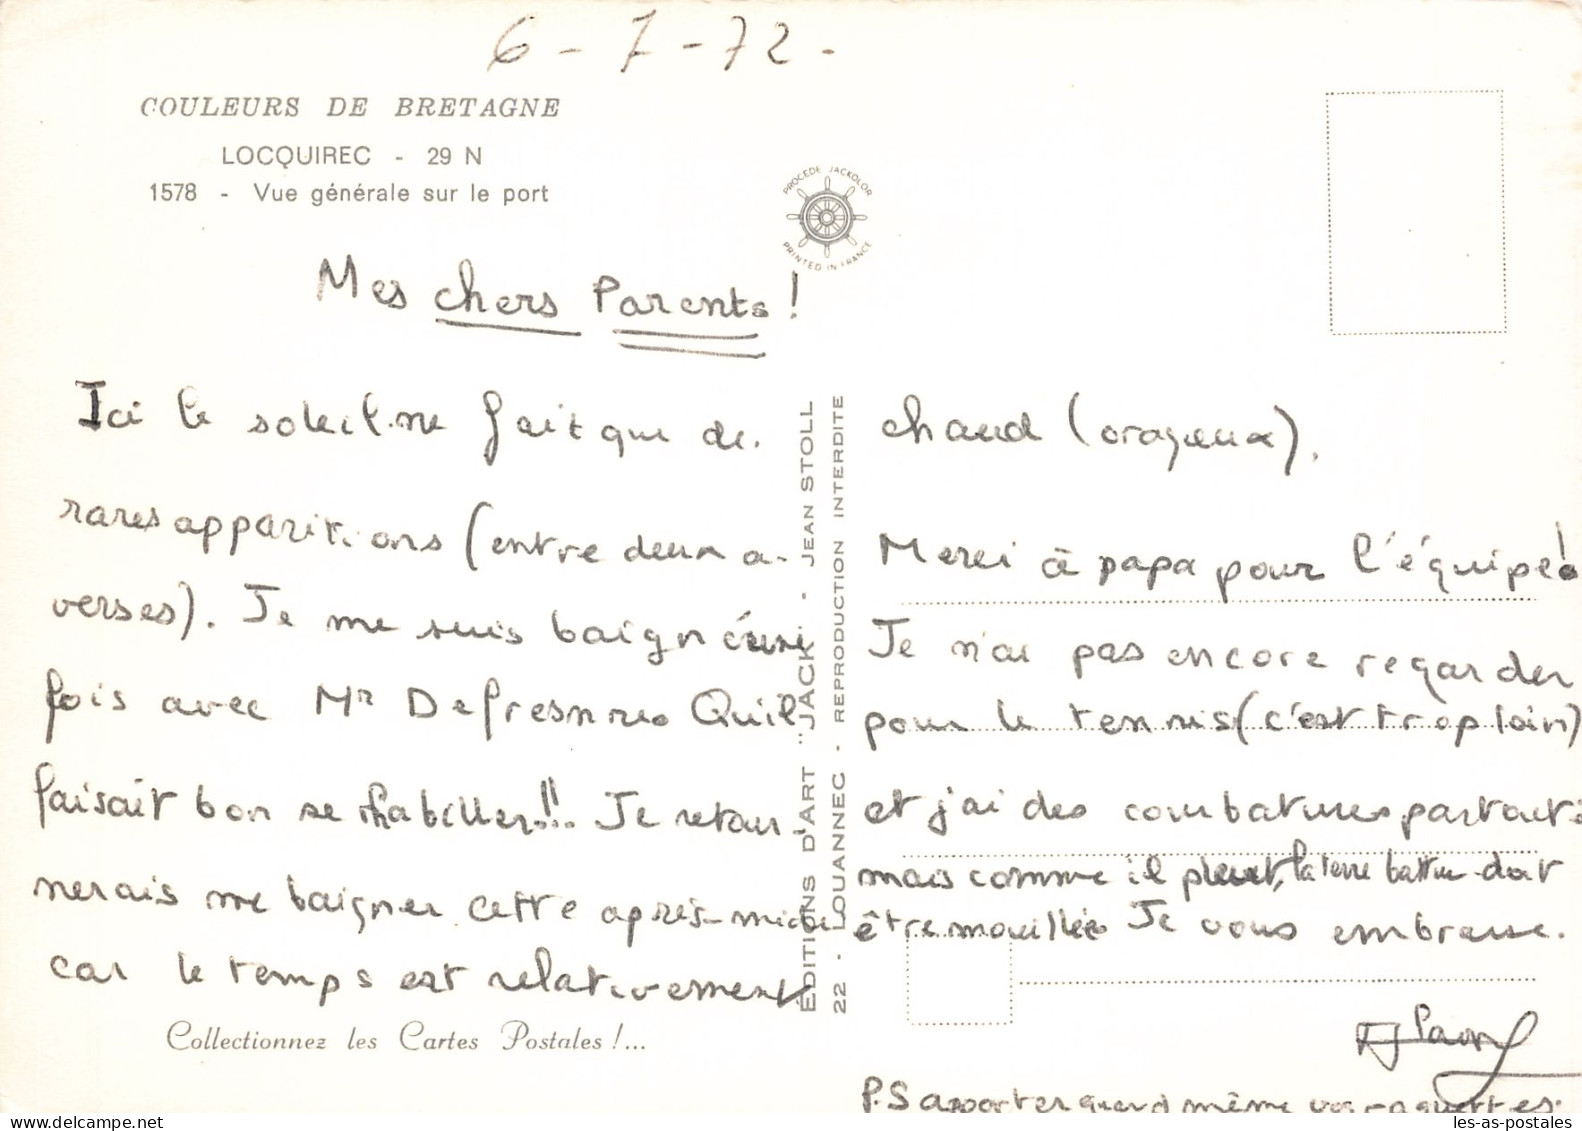 6-7-72-
COULEURS DE BRETAGNE
LOCQUIREC - 29 N
1578 - Vue générale sur le port
PROCEDE JACKOLOR
PRINTED IN FRANCE
Mes chers Parents !
Ici le soleil ne fait que de
rares apparitions (entre deux a-
verses). Je me suis baigné une
fois avec Mr Defresnnes Qu'il
faisait bon se rhabiller!!! Je retour-
nerais me baigner cette après-midi
car le temps est relativement
Collectionnez les Cartes Postales !...
EDITIONS D'ART "JACK" - JEAN STOLL
22 - LOUANNEC - REPRODUCTION INTERDITE
chaud (orageux).
Merci à papa pour l'équipe!
Je n'ai pas encore regarder
pour le tennis (c'est trop loin)
et j'ai des courbatures partout
mais comme il pleut, la terre battue doit
être mouillée Je vous embrasse.
P.S apporter quand même vos raquettes.
les-as-postales.com